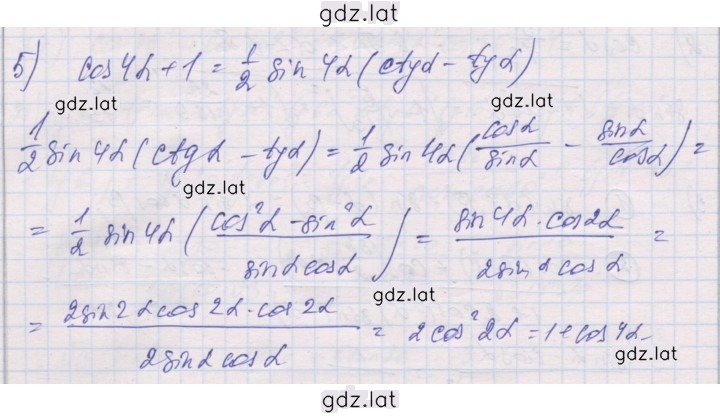 gdz.lat
5) cos4α+1 = 1/2 sin 4α (ctgα − tgα)
gdz.lat gdz.lat
1/2 sin 4α (ctgα − tgα) = 1/2 sin 4α (cosα/sinα − sinα/cosα) =
gdz.lat
= 1/2 sin 4α (cos²α − sin²α / sinαcosα) = sin4α · cos2α / 2sinα cosα =
gdz.lat
= 2sin2αcos2α · cos2α / 2sinαcosα = 2cos²2α = 1+cos4α.
gdz.lat
gdz.lat